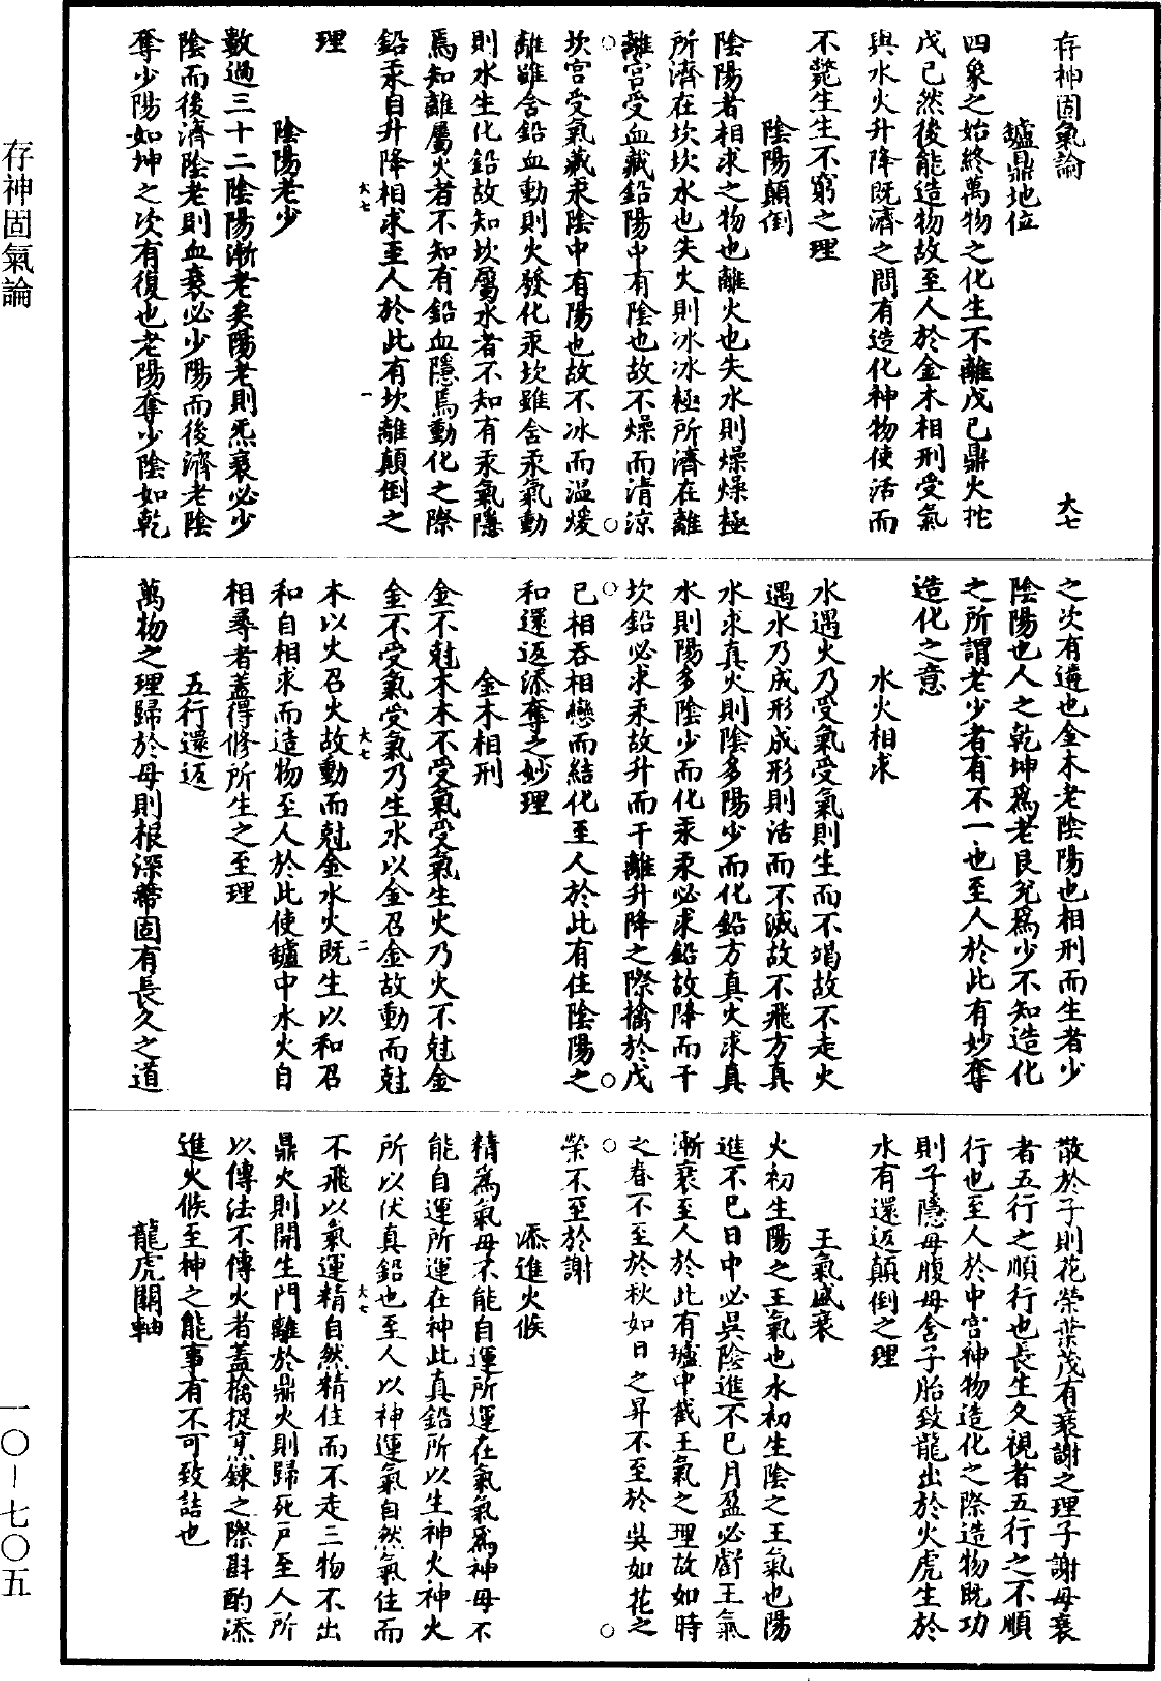 存神固氣論
大七
鑪鼎地位
四象之始終萬物之化生不離戊巳鼎火拕
戊已然後能造物故至人於金木相刑受氣
與水火升降既濟之間有造化神物使活而
不斃生生不窮之理
陰陽顛倒
陰陽者相求之物也離火也失水則燥燥極
所濟在坎坎水也失火則冰冰極所濟在離
離宮受血藏鉛陽中有陰也故不燥而清涼
坎宮受氣藏汞陰中有陽也故不冰而溫煖
離雖含鉛血動則火發化汞坎雖含汞氣動
則水生化鉛故知坎屬水者不知有汞氣隱
焉知離屬火者不知有鉛血隱焉動化之際
鉛汞自升降相求至人於此有坎離顛倒之
大七
一
理
陰陽老少
數過三十二陰陽漸老矣陽老則炁衰必少
陰而後濟陰老則血衰必少陽而後濟老陰
奪少陽如坤之次有復也老陽奪少陰如乾
之次有遘也金木老陰陽也相刑而生者少
陰陽也人之乾坤爲老艮兌爲少不知造化
之所謂老少者有不一也至人於此有妙奪
造化之意
水火相求
水遇火乃受氣受氣則生而不竭故不走火
遇水乃成形成形則活而不滅故不飛方真
水求真火則陰多陽少而化鉛方真火求真
水則陽多陰少而化汞汞必求鉛故降而干
坎鉛必求汞故升而干離升降之際擒於戊
已相吞相戀而結化至人於此有住陰陽之
和還返添奪之妙理
金木相刑
金不尅木木不受氣受氣生火乃火不尅金
金不受氣受氣乃生水以金召金故動而尅
大七
二
木以火召火故動而尅金水火既生以和召
和自相求而造物至人於此使鑪中水火自
相尋者蓋得修所生之至理
五行還返
萬物之理歸於母則根深蔕固有長久之道
散於子則花榮葉茂有衰謝之理子謝母衰
者五行之順行也長生久視者五行之不順
行也至人於中宮神物造化之際造物既功
則子隱母腹母含子胎致龍出於火虎生於
水有還返顛倒之理
王氣盛衰
火初生陽之王氣也水初生陰之王氣也陽
進不已日中必昃陰進不已月盈必虧王氣
漸衰至人於此有壚中截王氣之理故如時
之春不至於秋如日之昇不至於昃如花之
榮不至於謝
添進火候
精爲氣母不能自運所運在氣氣爲神母不
能自運所運在神此真鉛所以生神火神火
所以伏真鉛也至人以神運氣自然氣住而
不飛以氣運精自然精住而不走二物不出
大七
鼎火則開生門離於鼎火則歸死戶至人所
以傳法不傳火者蓋擒捉烹鍊之際斟酌添
進火候至神之能事有不可致詰也
龍虎關軸
存神固氣論
一〇－七〇五